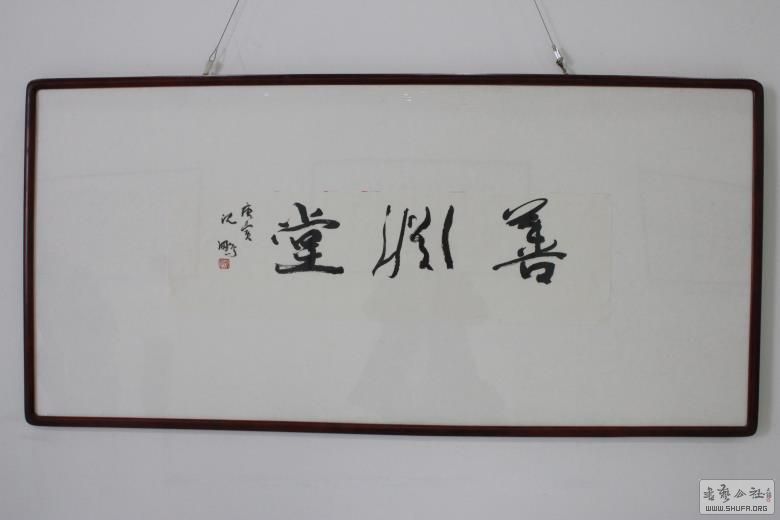 善渊堂
庚寅
沈鹏
书艺公社
WWW.SHUFA.ORG